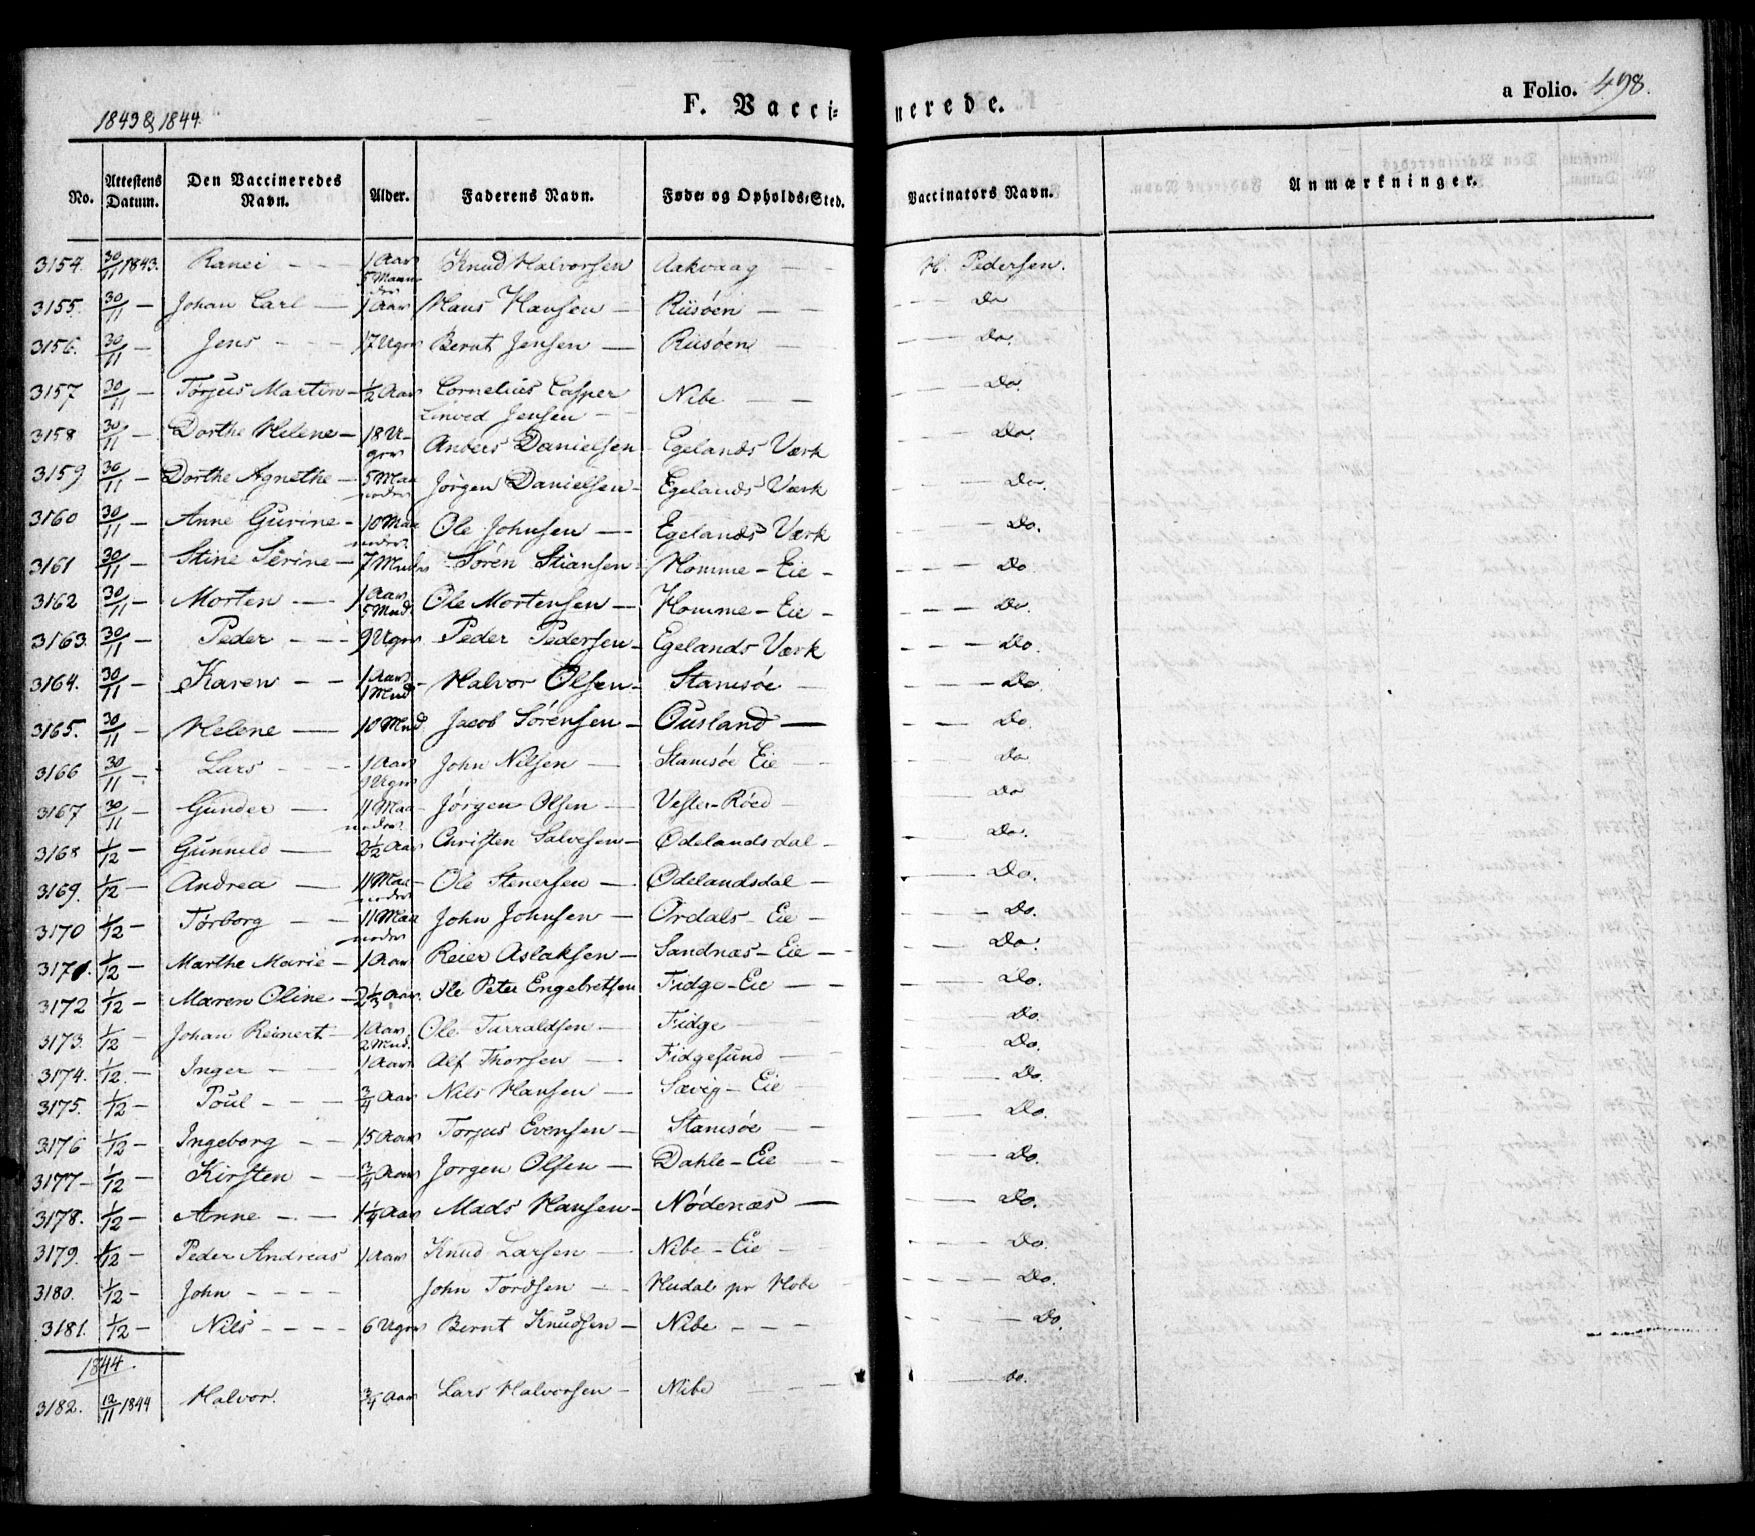 1843 & 1844. F. Vaccinerede. a Folio. 498.
No. Attestens Datum. Den Vaccineredes Navn. Alder. Faderens Navn. Føde- og Opholds-Sted. Vaccinators Navn. Anmærkninger.
3154. 30/11 1843. Ranei — — 1 Aar 5 Maaneder Knud Halvorsen Aakvaag — — H. Pedersen.
3155. 30/11 — Johan Carl — 1 Aar Hans Hansen — Riisøen — — — Do
3156. 30/11 — Jens — — 17 Uger Bernt Jensen — Riisøen — — — Do.
3157 30/11 — Tørjus Martin — 1/2 Aar Cornelius Casper Linved Jensen — — Nibe — — — Do.
3158 30/11 — Dorthe Helene — 18 Uger Anders Danielsen Egelands Værk — Do.
3159 30/11 — Dorthe Agnethe — 5 Maaneder Jørgen Danielsen — Egelands Værk — Do.
3160 30/11 — Anne Gurine — 10 Maaneder Ole Johnsen — Egelands Værk — Do.
3161 30/11 — Stine Serine — 7 Mnder Søren Stiansen Homme — Eie — — Do
3162 30/11 — Morten — 1 Aar 5 Mnd. Ole Mortensen — Homme — Eie — — Do.
3163. 30/11 — Peder — — 9 Uger Peder Pedersen — Egelands Værk — Do.
3164. 30/11 — Karen — — 1 Aar 1 Mnd. Halvor Olsen — Stamsøe — — Do
3165. 30/11 — Helene — 10 Mnd. Jacob Sørensen — Ousland — — Do.
3166 30/11 — Lars — — 1 Aar 9 Uger John Nilsen — Stamsøe Eie — — Do
3167 30/11 — Gunder — 11 Maaneder Jørgen Olsen — Vester-Røed — — Do
3168 1/12 — Gunnild — 2 1/2 Aar Christen Salvesen — Ødelandsdal — — Do.
3169. 1/12 — Andrea — 11 Maaneder Ole Stenersen — Ødelandsdal — — Do.
3170 1/12 — Tørborg — — 11 Maaneder John Johnsen — Ordals — Eie — — Do.
3171. 1/12 — Marthe Marie — 1 Aar Reier Aslaksen — Sandnæs — Eie — — Do.
3172 1/12 — Maren Oline — 2 1/3 Aar. Ole Peter Engebretsen Fidge — Eie — — Do.
3173. 1/12 — Johan Reinert — 1 Aar. 2 Mnd. Ole Tarraldsen — Fidge — — Do.
3174. 1/12. — Inger — — 1 Aar Alf Thorsen — Fidgesund — — Do.
3175. 1/12 — Poul — — — 3/4 Aar Nils Hansen — Savig — Eie — — Do.
3176 1/12 — Ingeborg — — 15 Aar Torjus Evensen — Stamsøe — — Do.
3177 — 1/12 — Kirsten — — 3/4 Aar Jørgen Olsen — Dahle — Eie — — Do.
3178. 1/12 — Anne — — 1 1/4 Aar Mads Hansen — Nødenæs — — Do.
3179. 1/12 — Peder Andreas 1 Aar Knud Larsen — Nibe — Eie — — Do.
3180. 1/12 — John — — — John Tordsen — Hudal pr Hobe — — Do.
3181. 1/12 — Nils — — — 6 Uger Bernt Knudsen — Nibe — — — Do.
1844.
3182. 12/11 1844 Halvor. 3/4 Aar Lars Halvorsen — Nibe — — do.